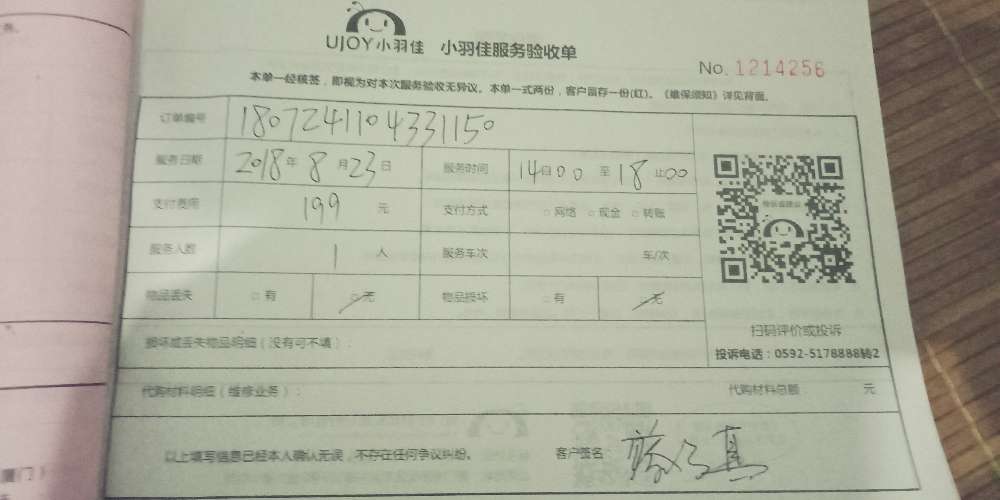 UJOY小羽佳 小羽佳服务验收单
No. 1214256
本单一经核签，即视为对本次服务验收无异议。本单一式两份，客户留存一份(红)。《维保须知》详见背面。
订单编号 1807241104331150
服务日期 2018年8月23日 服务时间 14 00 至 18 止00
支付费用 199 元 支付方式 □网络 □现金 □转账
服务人数 1 人 服务车次 车/次
物品丢失 □有 □无 物品损坏 □有 □无
扫码评价或投诉
投诉电话：0592-5178888转2
损坏或丢失物品明细（没有可不填）：
代购材料明细（维修业务）： 代购材料总额 元
以上填写信息已经本人确认无误，不存在任何争议纠纷。 客户签名：
厦门）